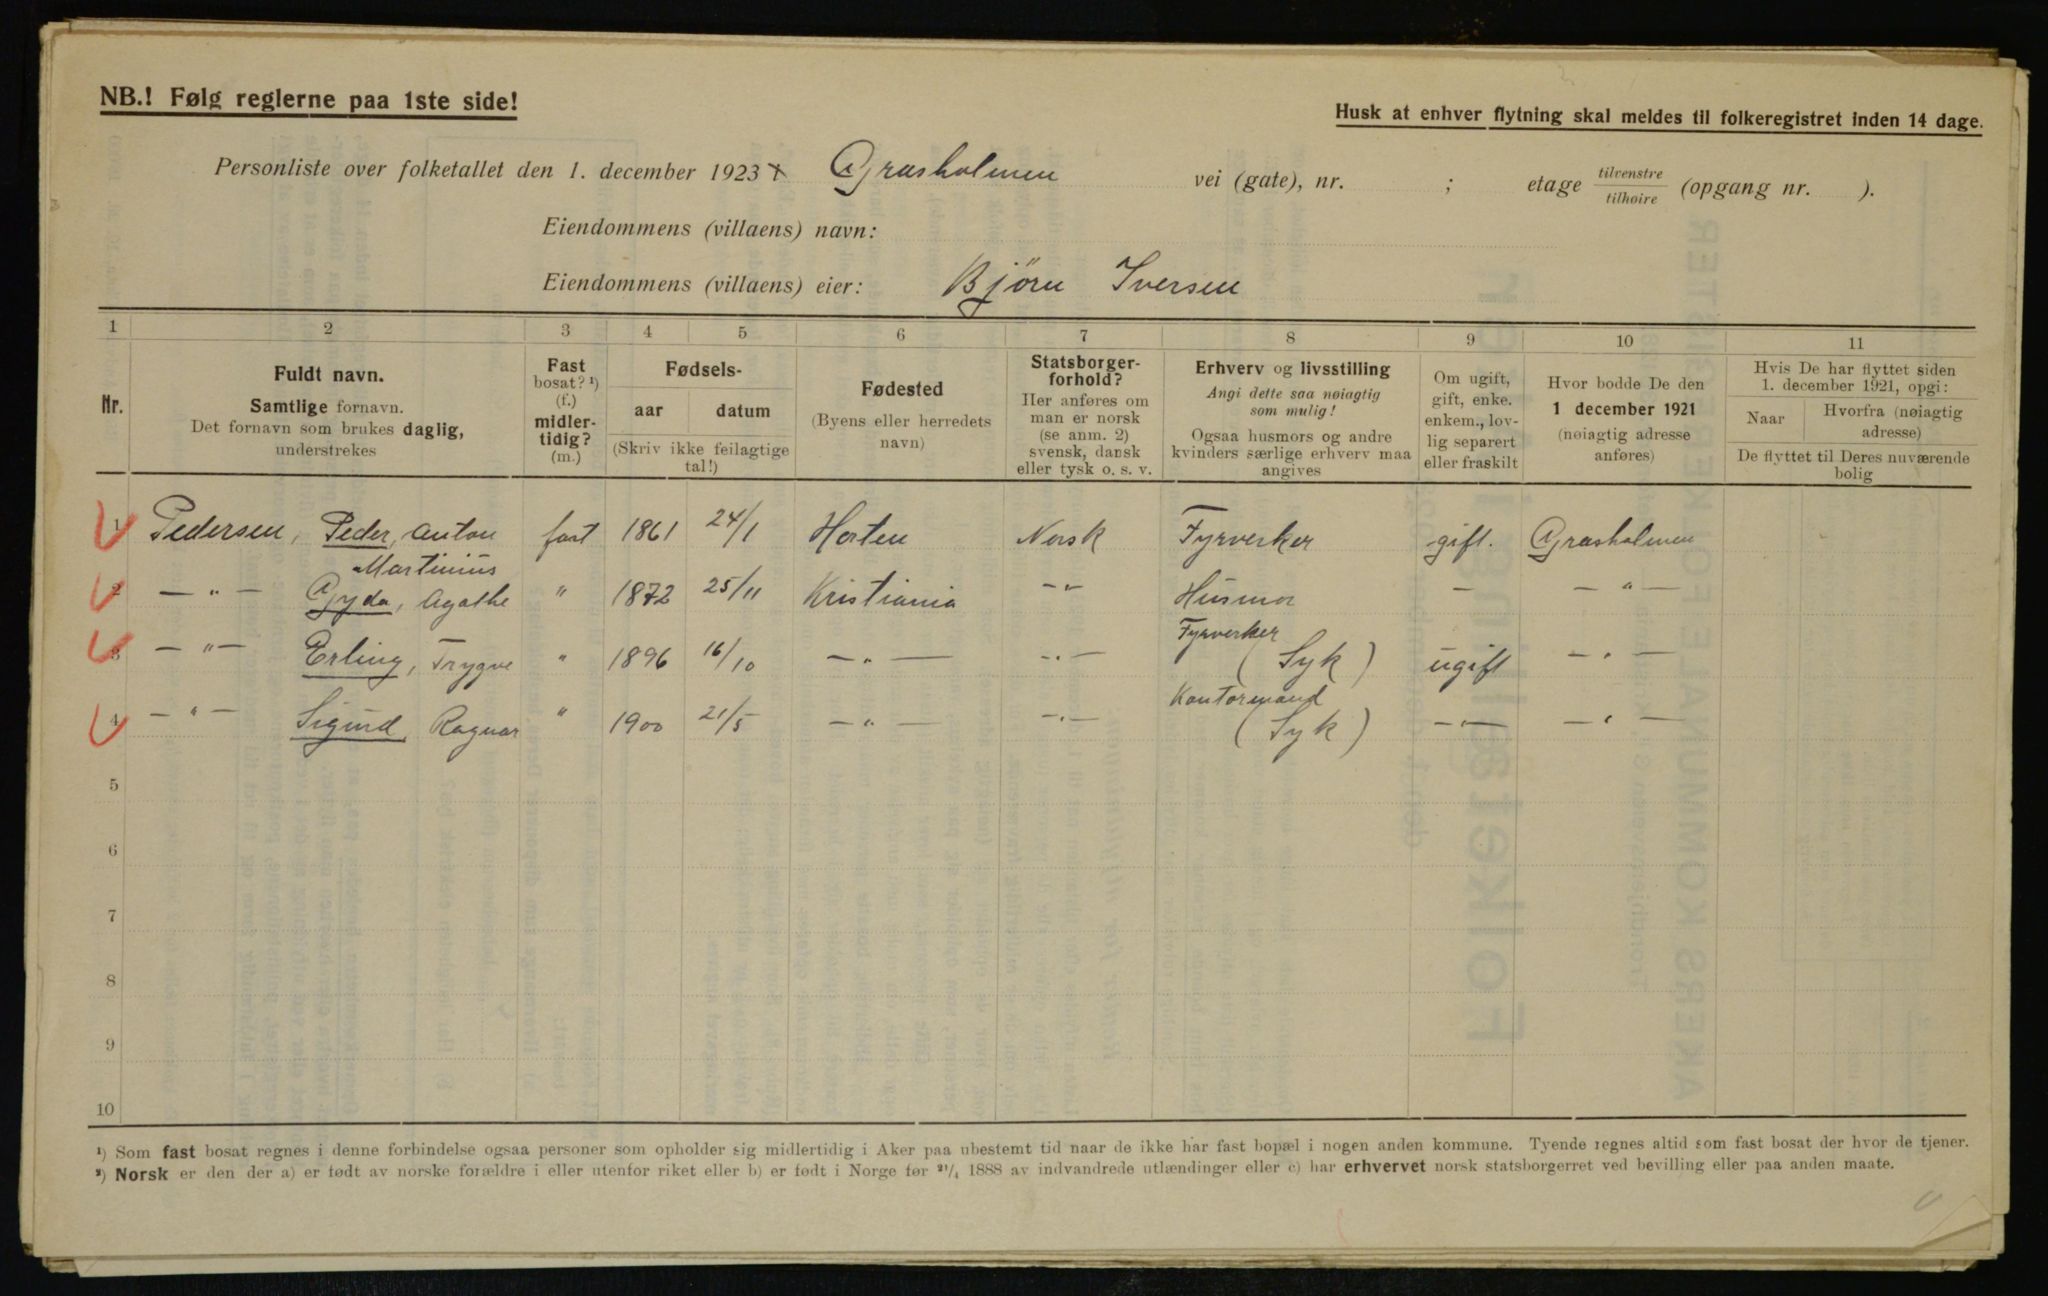 NB.! Følg reglerne paa 1ste side!
Husk at enhver flytning skal meldes til folkeregistret inden 14 dage.
Personliste over folketallet den 1. december 1923 Græsholmen vei (gate), nr. ; etage tilvenstre / tilhøire (opgang nr. ).
Eiendommens (villaens) navn:
Eiendommens (villaens) eier: Bjørn Iversen
1 2 3 4 5 6 7 8 9 10 11
Nr.
Fuldt navn.
Samtlige fornavn.
Det fornavn som brukes daglig,
understrekes
Fast
bosat? ¹)
(f.)
midler-
tidig?
(m.)
Fødsels-
aar datum
(Skriv ikke feilagtige
tal!)
Fødested
(Byens eller herredets
navn)
Statsborger-
forhold?
Her anføres om
man er norsk
(se anm. 2)
svensk, dansk
eller tysk o. s. v.
Erhverv og livsstilling
Angi dette saa nøiagtig
som mulig!
Ogsaa husmors og andre
kvinders særlige erhverv maa
angives
Om ugift,
gift, enke.
enkem., lov-
lig separert
eller fraskilt
Hvor bodde De den
1 december 1921
(nøiagtig adresse
anføres)
Hvis De har flyttet siden
1. december 1921, opgi:
Naar
Hvorfra (nøiagtig
adresse)
De flyttet til Deres nuværende
bolig
1 Pedersen, Peder, Anton fast 1861 24/1 Horten Norsk Fyrverker gift. Græsholmen
Martinius
2 — " — Gyda, Agathe " 1872 25/11 Kristiania — " — Husmor — — " —
Fyrverker
3 — " — Erling, Trygve " 1896 16/10 — " — — " — (Syk) ugift — " —
Kontormand
4 — " — Sigurd, Ragnar " 1900 21/5 — " — — " — (Syk) — " — — " —
5
6
7
8
9
10
¹) Som fast bosat regnes i denne forbindelse ogsaa personer som opholder sig midlertidig i Aker paa ubestemt tid naar de ikke har fast bopæl i nogen anden kommune. Tyende regnes altid som fast bosat der hvor de tjener.
²) Norsk er den der a) er født av norske forældre i eller utenfor riket eller b) er født i Norge før ²¹/₄ 1888 av indvandrede utlændinger eller c) har erhvervet norsk statsborgerret ved bevilling eller paa anden maate.